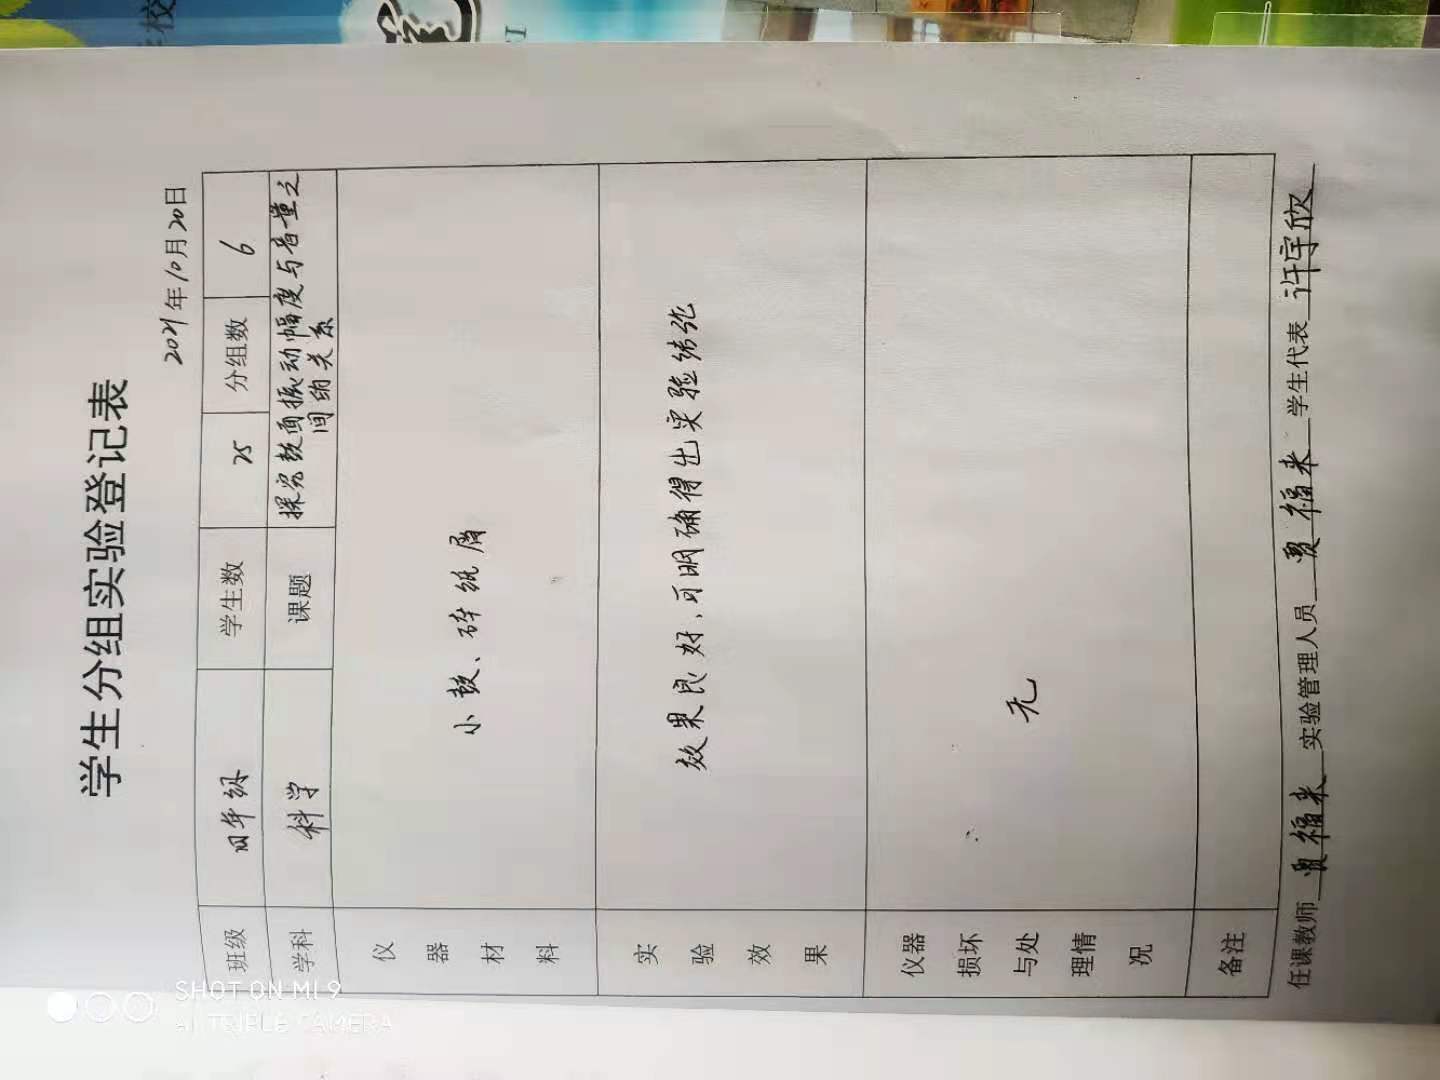 学生分组实验登记表
2021年10月20日
班级 四年级 学生数 25 分组数 6
学科 科学 课题 探究鼓面振动幅度与音量之
间的关系
仪器材料 小鼓、碎纸屑
实验效果 效果良好,可明确得出实验结论
仪器损坏与处理情况 无
备注
任课教师 贾福来 实验管理人员 贾福来 学生代表 许宇欣
SHOT ON MI 9
AI TRIPLE CAMERA